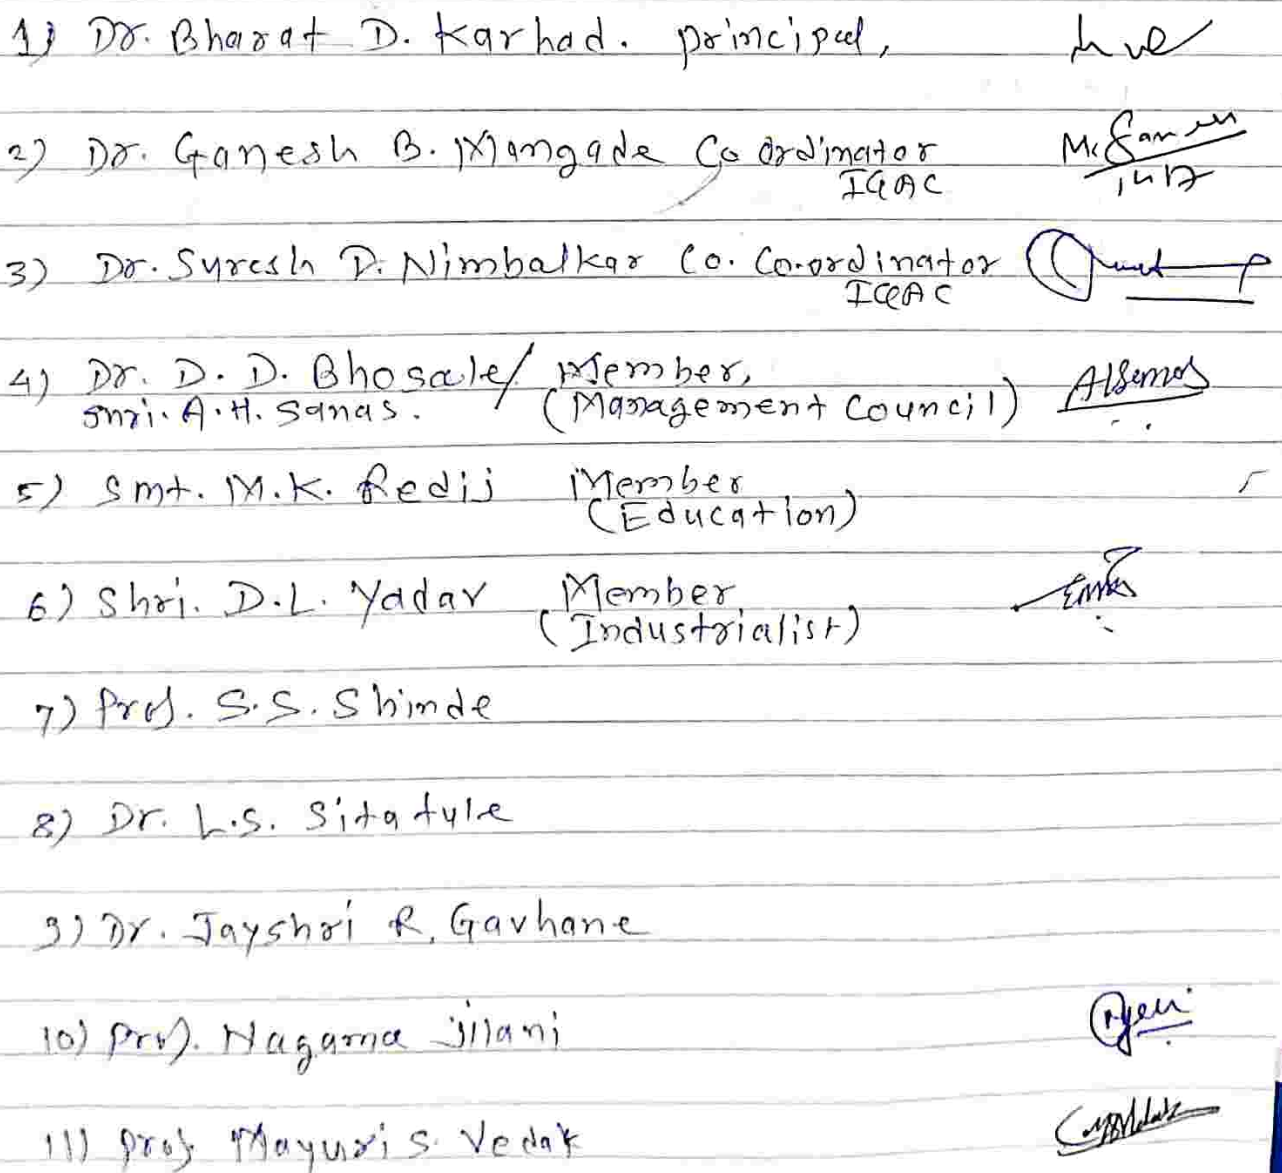 1) Dr. Bharat D. Karhad. principal,
2) Dr. Ganesh B. Mangade Co ordinator
IQAC
3) Dr. Suresh D. Nimbalkar Co. Co-ordinator
IQAC
4) Dr. D. D. Bhosale/ Member,
Shri. A.H. Sanas. (Management Council)
5) Smt. M.K. Redij Member
(Education)
6) Shri. D.L. Yadav Member
(Industrialist)
7) Prof. S.S. Shinde
8) Dr. L.S. Sitafule
9) Dr. Jayshri R. Gavhane
10) Prof. Nagama Jilani
11) Prof. Mayuri S. Vedak